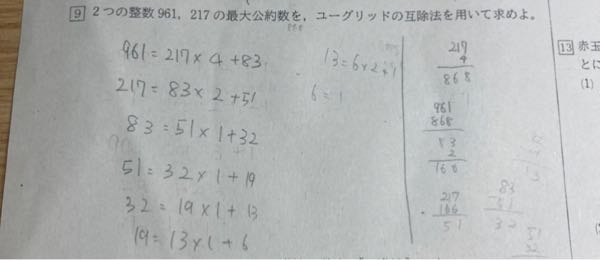 9 2つの整数961, 217の最大公約数を, ユーグリッドの互除法を用いて求めよ。
961=217×4+83
217=83×2+51
83=51×1+32
51=32×1+19
32=19×1+13
19=13×1+6
13=6×2+1
6=1
217
4
868
961
868
83
2
168
217
166
51
83
51
32
51
32
13 赤玉
とに
(1)